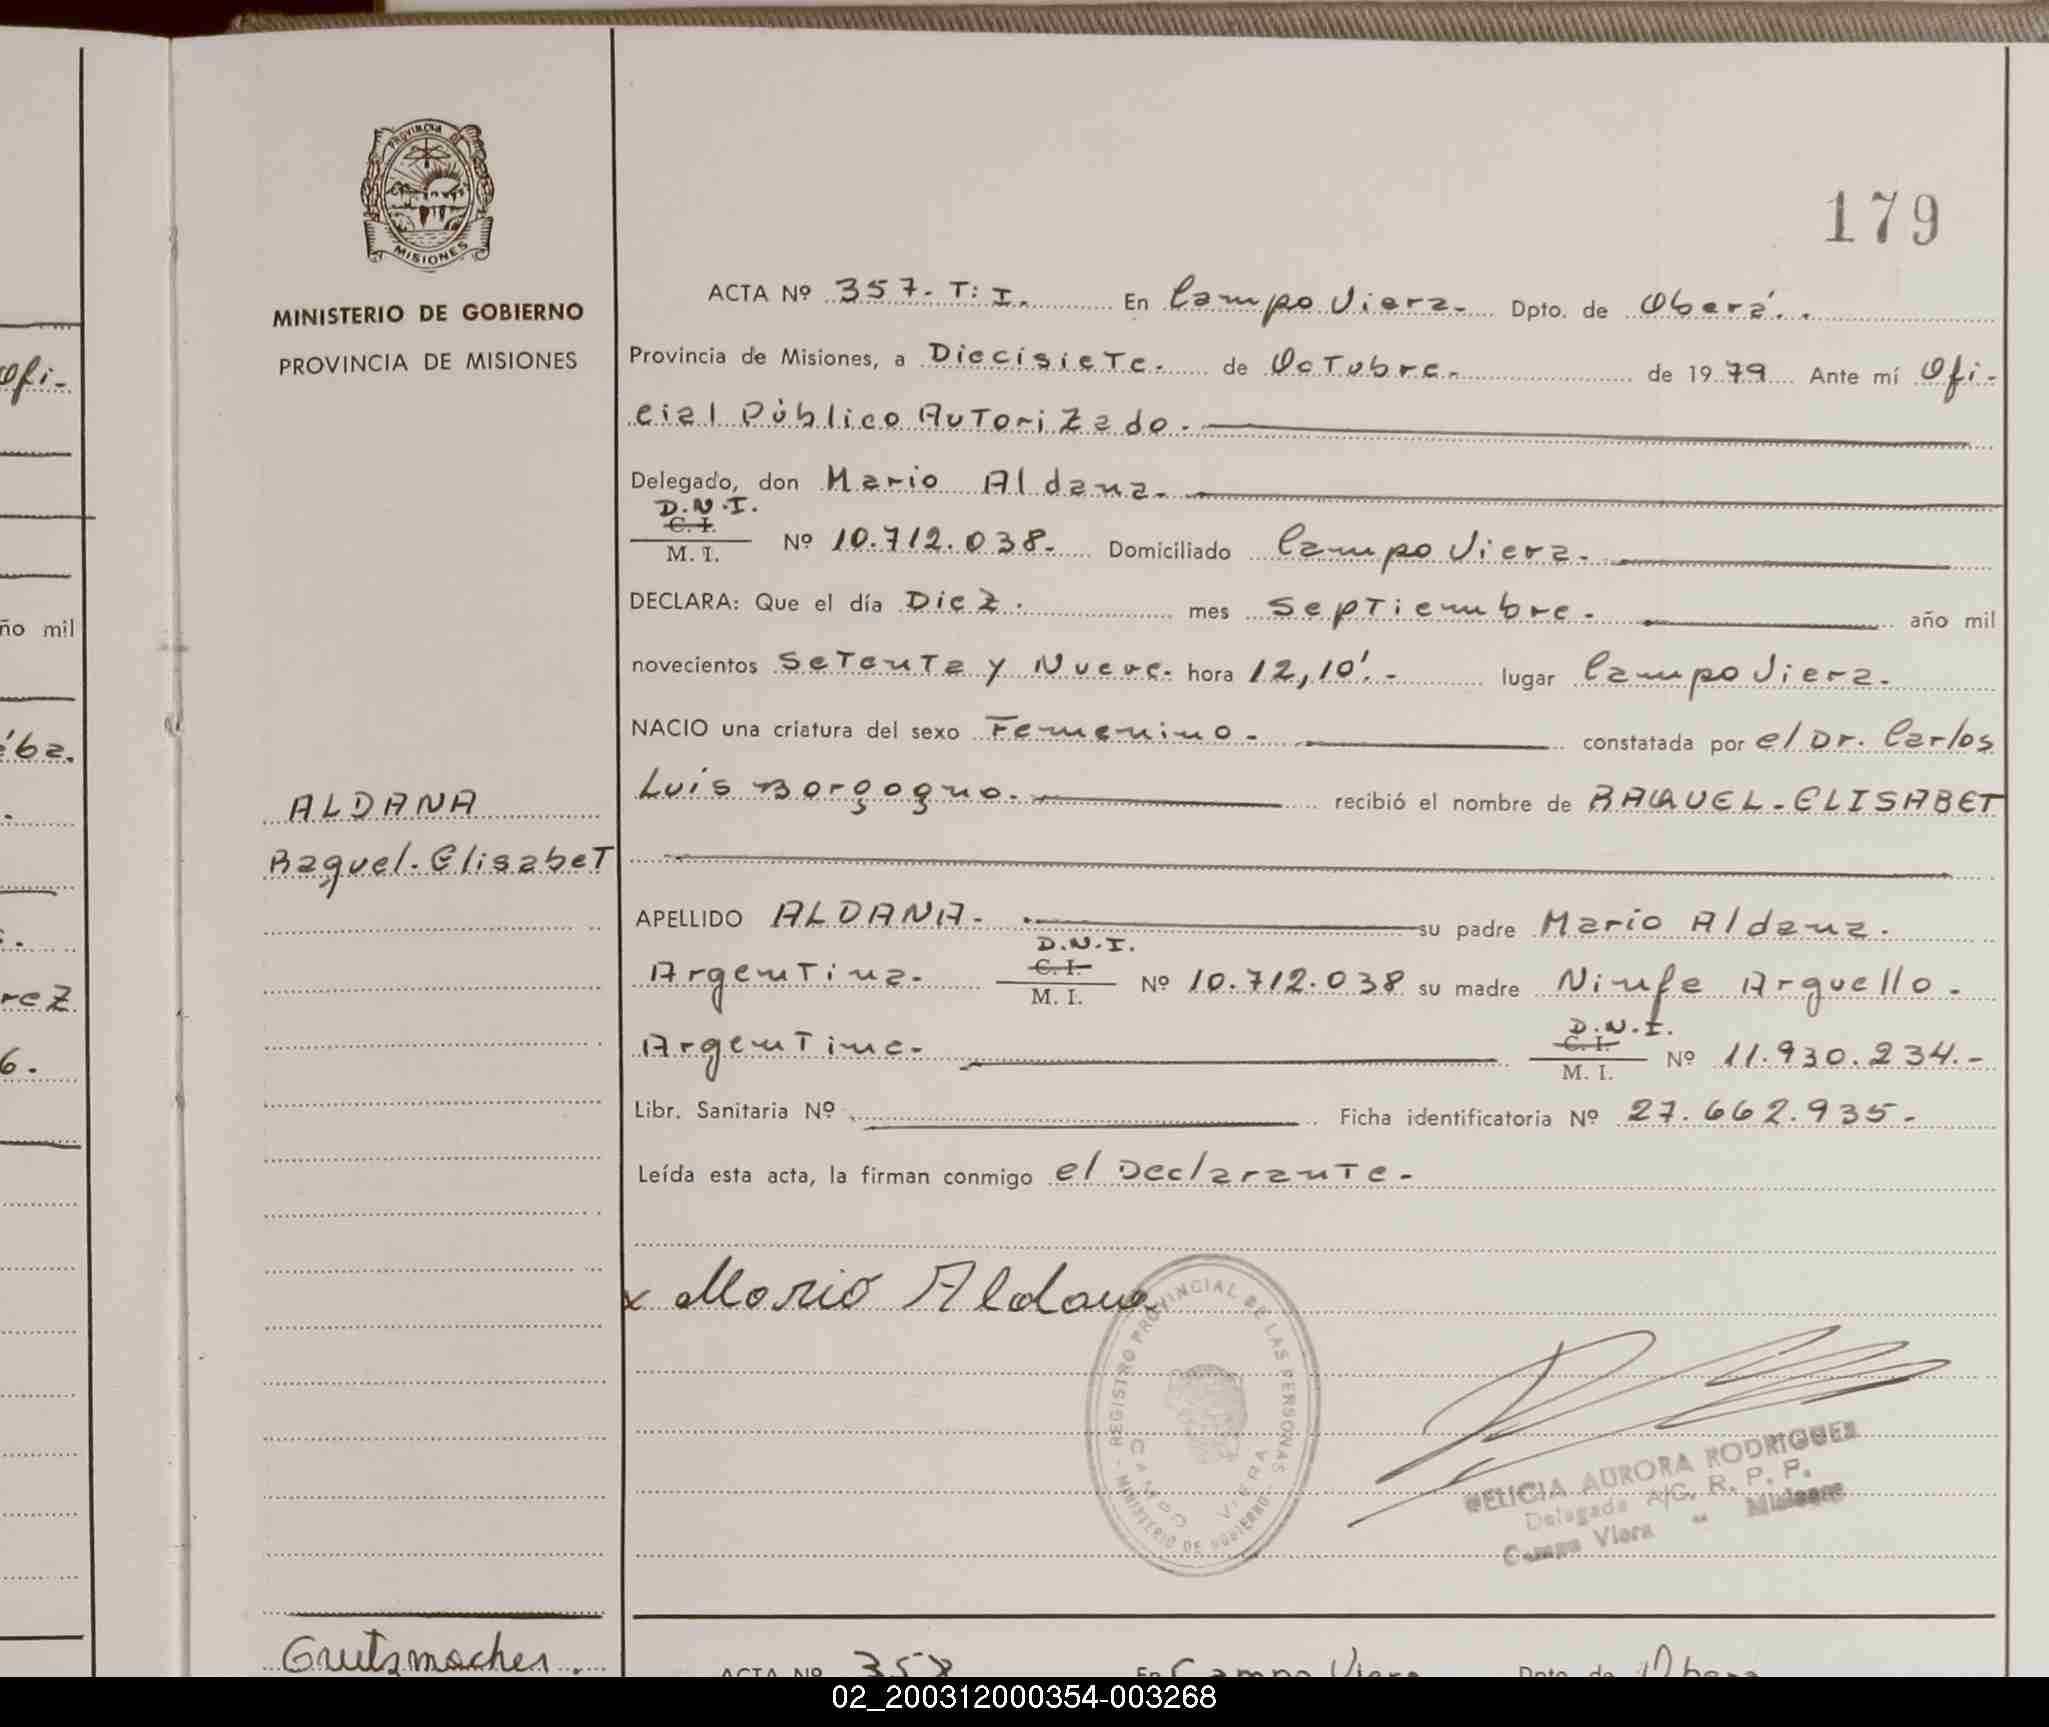 179
PROVINCIA DE
MISIONES
MINISTERIO DE GOBIERNO
PROVINCIA DE MISIONES
ACTA Nº 357.- T: I. En Campo Viera.- Dpto. de Oberá..
Provincia de Misiones, a Diecisiete. de Octubre.- de 1979 Ante mí Ofi-
cial Público Autorizado.-
Delegado, don Mario Aldana.-
D.N.I.
C. I.
M. I. Nº 10.712.038.- Domiciliado Campo Viera.-
DECLARA: Que el día Diez. mes Septiembre.- año mil
novecientos Setenta y Nueve.- hora 12,10'.- lugar Campo Viera.
NACIO una criatura del sexo Femenino.- constatada por el Dr. Carlos
Luis Borgogno.- recibió el nombre de RAQUEL-ELISABET
ALDANA
Raquel.Elisabet
APELLIDO ALDANA.- su padre Mario Aldana.
D.N.I.
C. I.
Argentina.- M. I. Nº 10.712.038 su madre Ninfe Arguello.-
D.N.I.
C. I.
Argentine.- M. I. Nº 11.930.234.-
Libr. Sanitaria Nº Ficha identificatoria Nº 27.662.935.-
Leída esta acta, la firman conmigo el Declarante.-
x Mario Aldana
REGISTRO PROVINCIAL DE LAS PERSONAS
MINISTERIO DE GOBIERNO
CAMPO VIERA
AURORA RODRIGUEZ
Delegada A/C. R. P. P.
Campo Viera - Misiones
Grutzmacher.
ACTA Nº 358 En Campo Viera Dpto de Obera
ofi-
ño mil
éba.
rez
6.
02_200312000354-003268